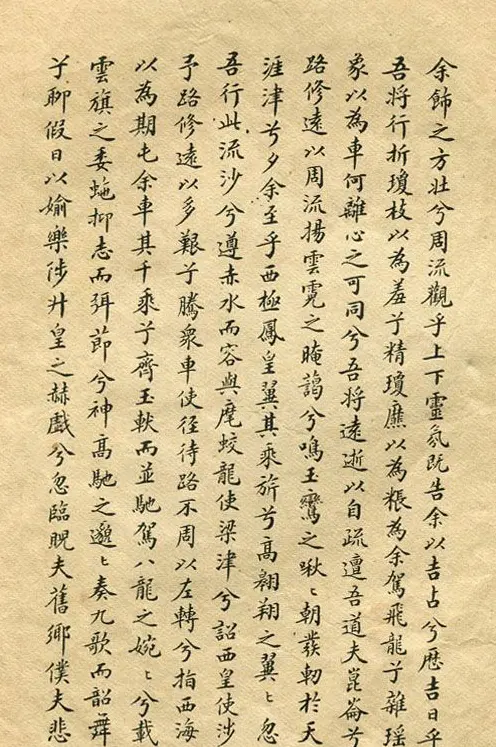 余飾之方壯兮周流觀乎上下靈氛既告余以吉占兮歷吉日乎
吾將行折瓊枝以為羞兮精瓊爢以為粻為余駕飛龍兮雜瑤
象以為車何離心之可同兮吾將遠逝以自疏邅吾道夫崑崙兮
路修遠以周流揚雲霓之晻藹兮鳴玉鸞之啾〻朝發軔於天
津兮夕余至乎西極鳳皇翼其乘旂兮高翱翔之翼〻忽
吾行此流沙兮遵赤水而容與麾蛟龍使梁津兮詔西皇使涉
予路修遠以多艱兮騰眾車使徑待路不周以左轉兮指西海
以為期屯余車其千乘兮齊玉軑而並馳駕八龍之婉〻兮載
雲旗之委蛇抑志而弭節兮神高馳之邈〻奏九歌而韶舞
兮聊假日以媮樂陟升皇之赫戲兮忽臨睨夫舊鄉僕夫悲